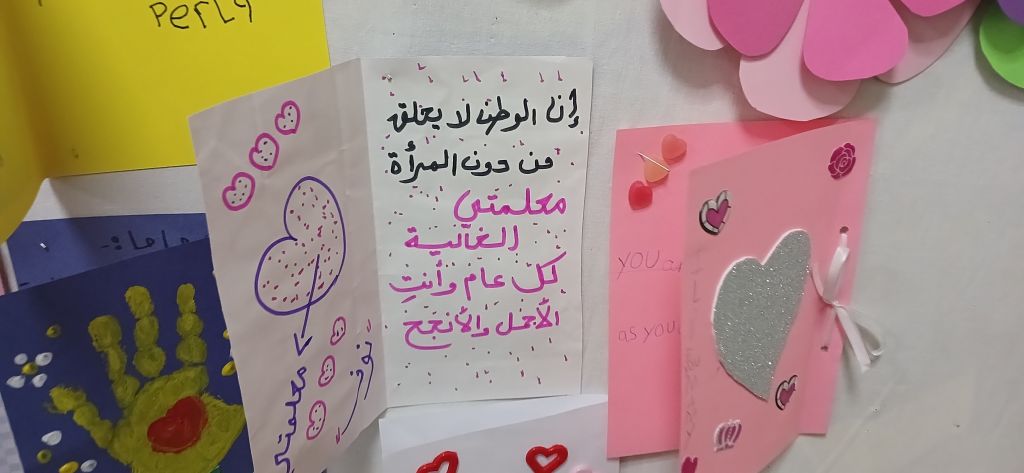 Perly
إن الوطن لا يحلق
من دون المرأة
معلمتي
الغالية
كل عام وأنتِ
الأجمل والأنجح
معلمتي
you
as you